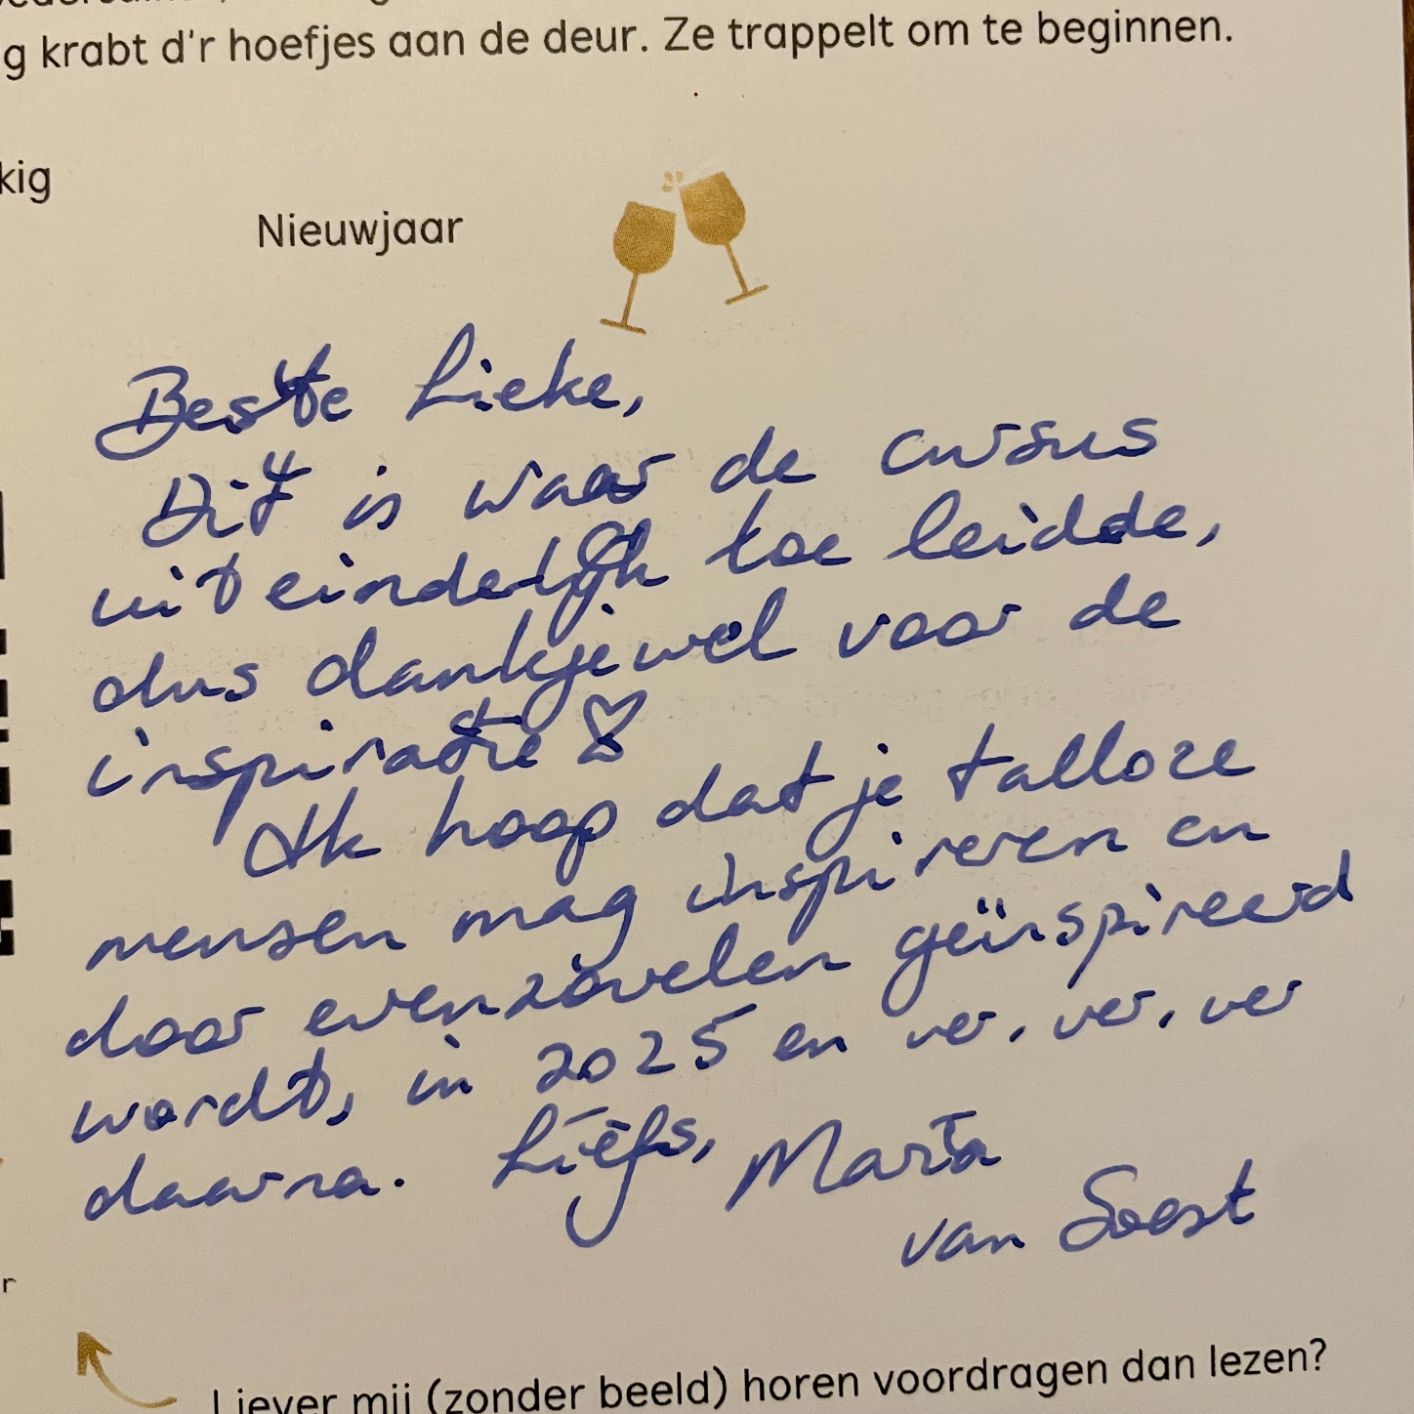 g krabt d'r hoefjes aan de deur. Ze trappelt om te beginnen.
kig
Nieuwjaar
Beste Lieke,
Dit is waar de cursus
uiteindelijk toe leidde,
dus dankjewel voor de
inspiratie
Ik hoop dat je talloze
mensen mag inspireren en
door evenzovelen geïnspireerd
wordt, in 2025 en ver, ver, ver
daarna. Liefs, Maria
van Soest
r
Liever mij (zonder beeld) horen voordragen dan lezen?